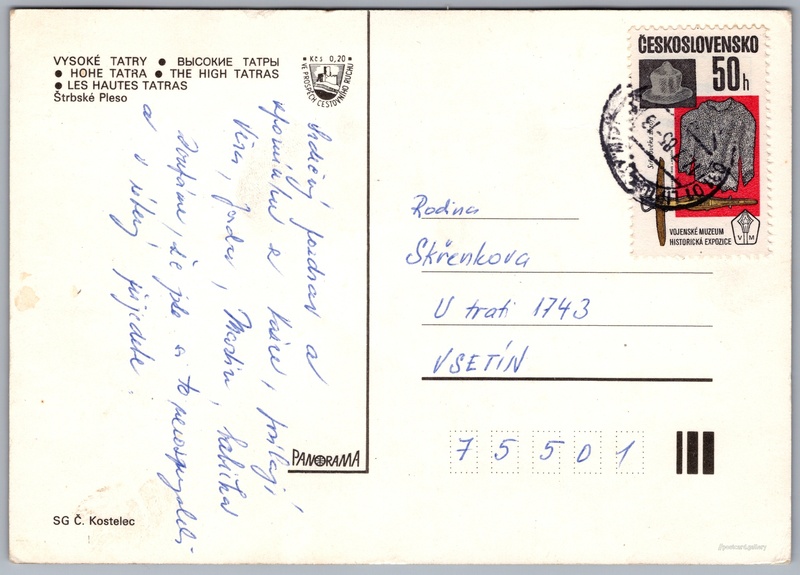 VYSOKÉ TATRY ● ВЫСОКИЕ ТАТРЫ
● HOHE TATRA ● THE HIGH TATRAS
● LES HAUTES TATRAS
Štrbské Pleso
Kčs 0,20
VE PROSPĚCH CESTOVNÍHO RUCHU
Srdečný pozdrav a
vzpomínku z Tater, posílají
Věra, Jarda, Martin,
Doufáme, že jste si to nerozmysleli
a v úterý přijedete.
PANORAMA
SG Č. Kostelec
ČESKOSLOVENSKO
50h
VOJENSKÉ MUZEUM
HISTORICKÁ EXPOZICE
V M
Rodina
Skřenkova
U trati 1743
VSETÍN
7 5 5 0 1
//postcard.gallery